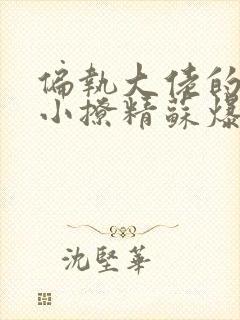 偏執大佬的
小撩精蘇爆
沈堅華